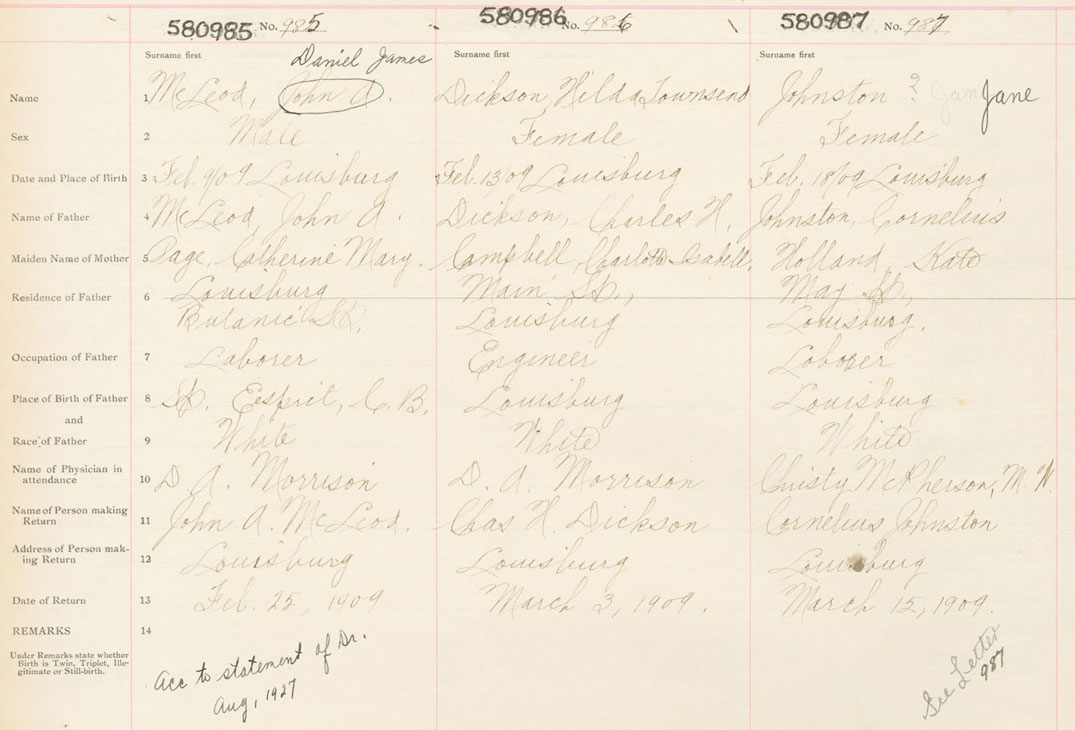 580985 No. 985 580986 No. 986 580987 No. 987
Surname first Daniel James Surname first Surname first
Name 1 McLeod, John A. Dickson, Hilda Townsend Johnston ? Jane Jane
Sex 2 Male Female Female
Date and Place of Birth 3 Feb. 9/09 Louisburg Feb. 13 09 Louisburg Feb. 18/09 Louisburg
Name of Father 4 McLeod, John A. Dickson, Charles H. Johnston, Cornelius
Maiden Name of Mother 5 Page, Catherine Mary. Campbell, Charlotte Isabell. Holland, Kate
Residence of Father 6 Louisburg Main St., May St.,
Butanic St. Louisburg Louisburg.
Occupation of Father 7 Laborer Engineer Laborer
Place of Birth of Father 8 St. Esprit, C. B. Louisburg Louisburg
and
Race of Father 9 White White White
Name of Physician in
attendance 10 D. A. Morrison D. A. Morrison Christy McPherson, M. W.
Name of Person making
Return 11 John A. McLeod. Chas H. Dickson Cornelius Johnston
Address of Person mak-
ing Return 12 Louisburg Louisburg Louisburg
Date of Return 13 Feb. 25, 1909 March 3, 1909. March 15, 1909.
REMARKS 14
Under Remarks state whether
Birth is Twin, Triplet, Ille-
gitimate or Still-birth.
Acc to statement of Dr.
Aug, 1927
See Letter
987